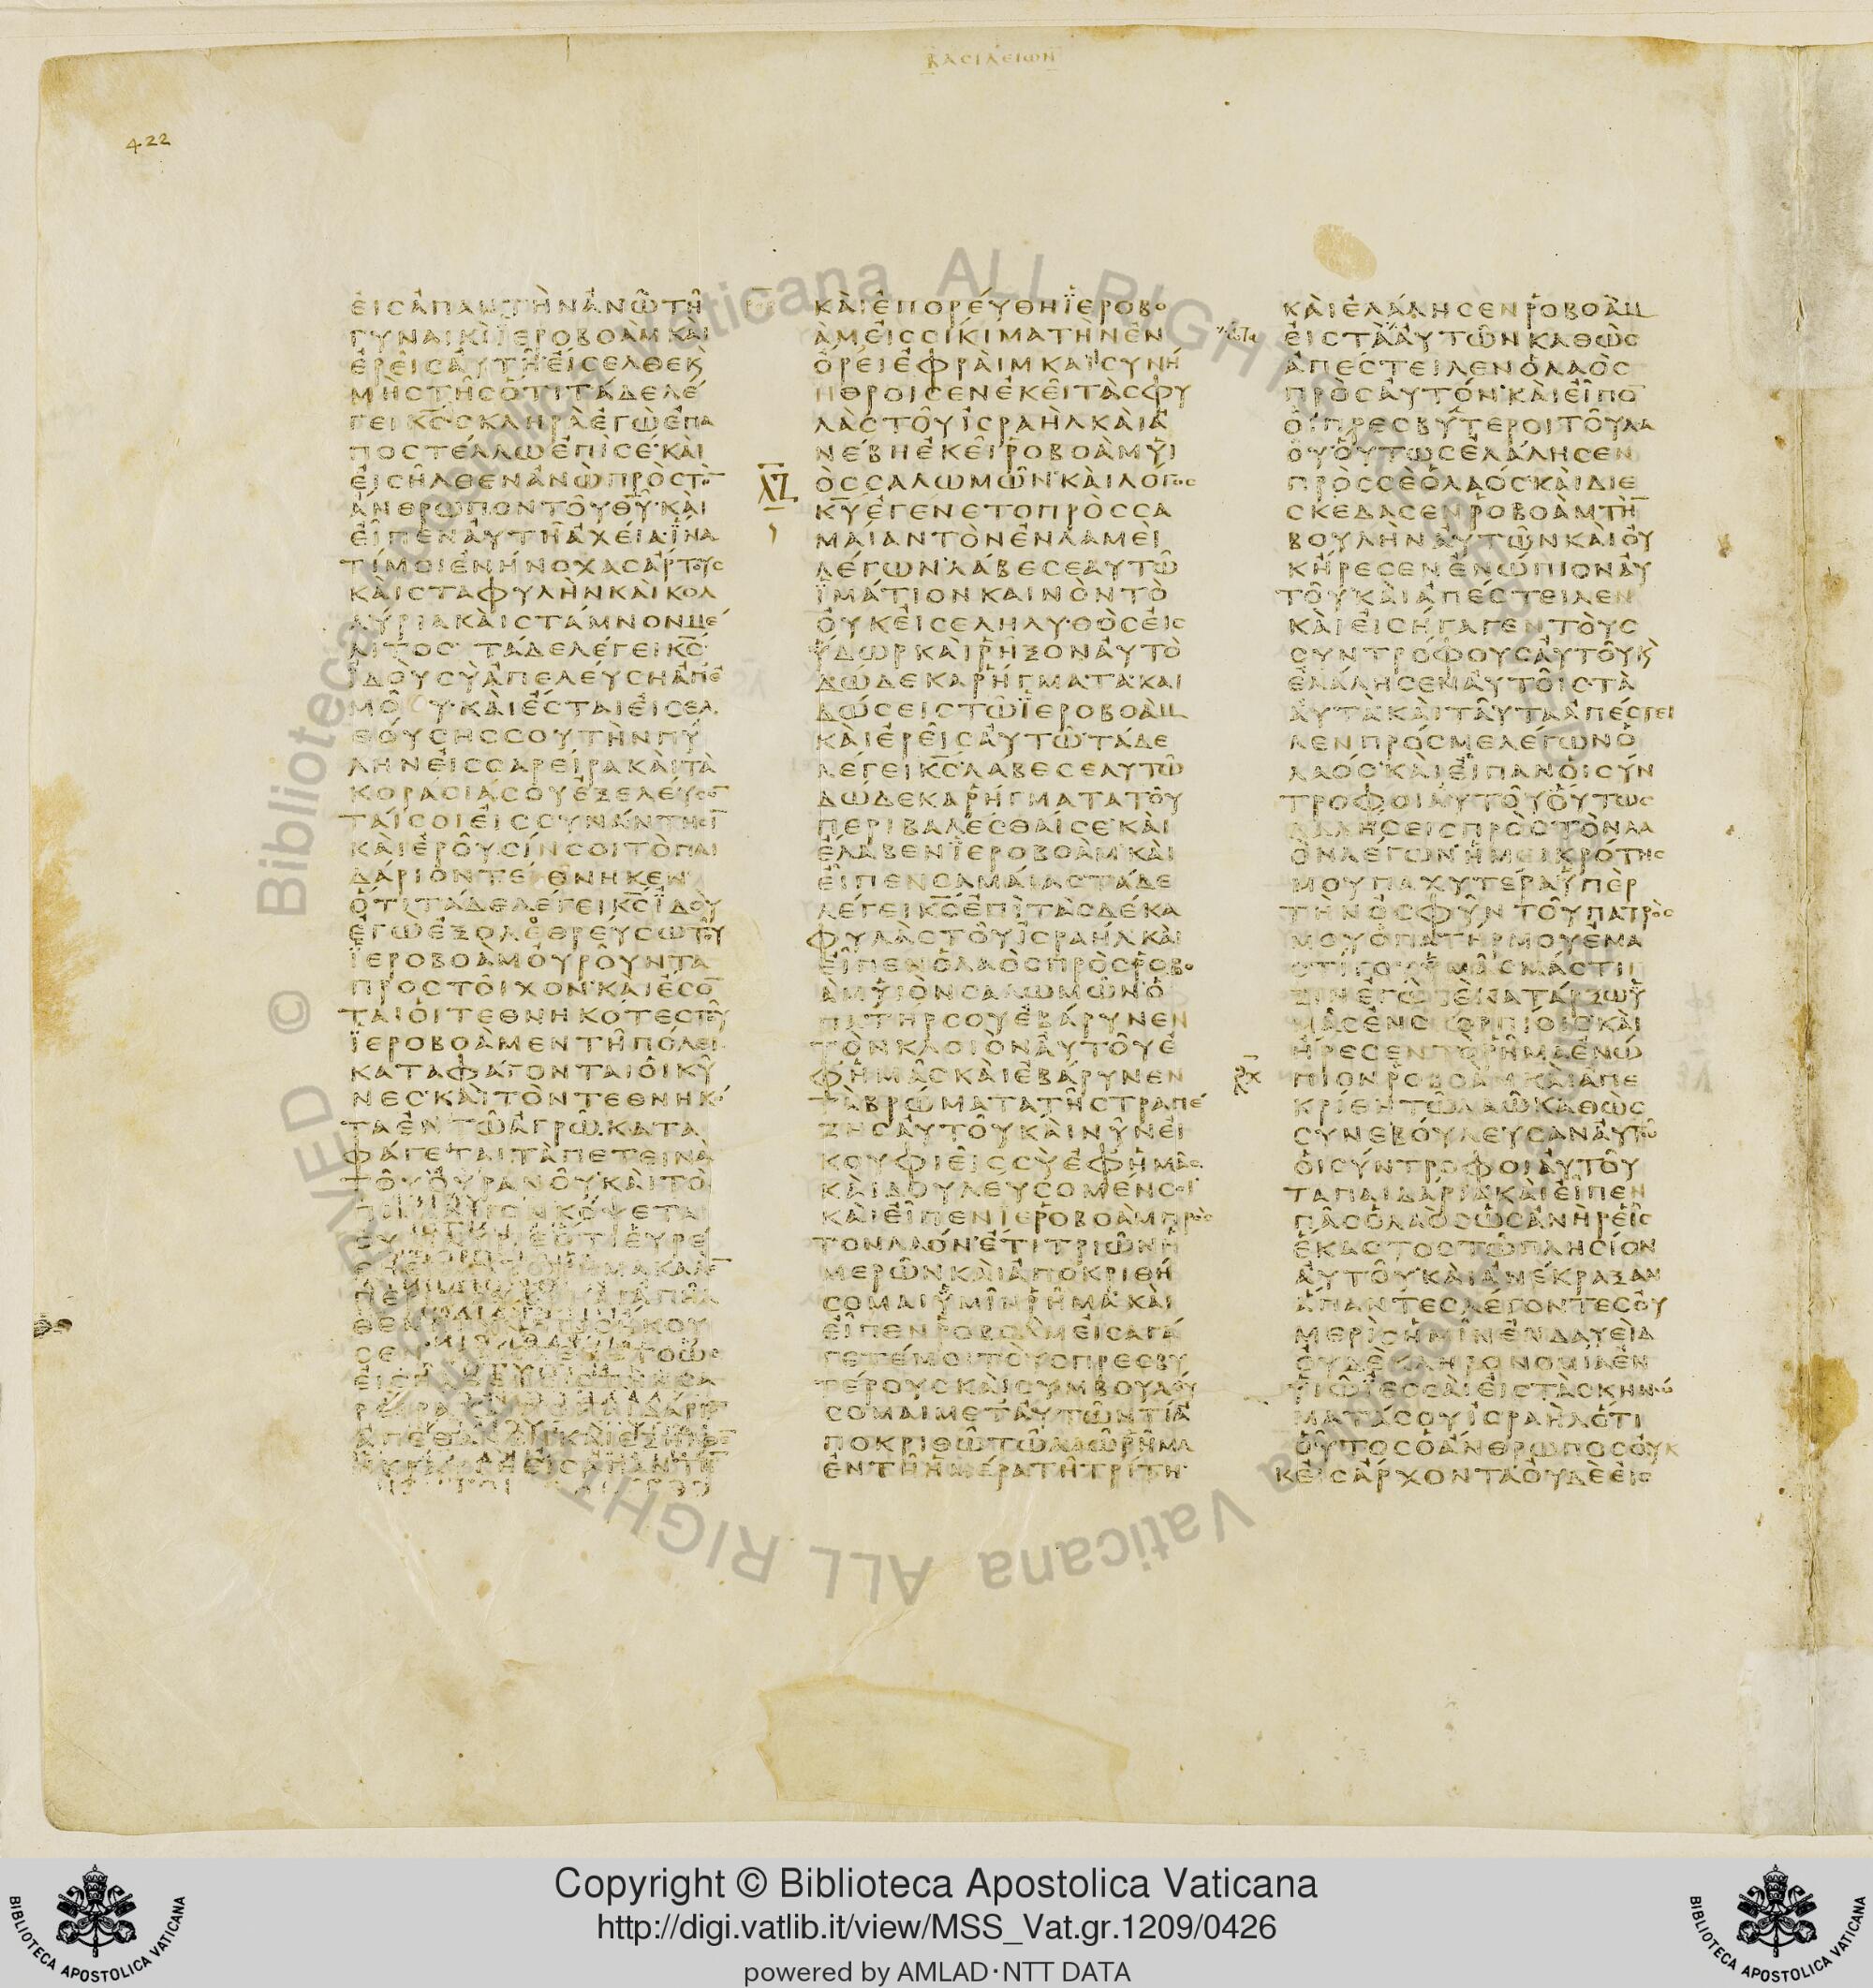 ΒΑΣΙΛΕΙΩΝ
422
ΕΙΣΑΠΑΝΤΗΝΑΝΩΤΗ
ΓΥΝΑΙΚΙΙΕΡΟΒΟΑΜΚΑΙ
ΕΡΕΙΣΑΥΤΗΕΙΣΕΛΘΕΚ
ΜΗΣΤΗΣΟΤΙΤΑΔΕΛΕ
ΓΕΙΚΣΣΚΛΗΡΑΕΓΩΕΠΑ
ΠΟΣΤΕΛΛΩΕΠΙΣΕΚΑΙ
ΕΙΣΗΛΘΕΝΑΝΩΠΡΟΣΤΟ
ΑΝΘΡΩΠΟΝΤΟΥΘΥΚΑΙ
ΕΙΠΕΝΑΥΤΗΑΧΕΙΑΙΝΑ
ΤΙΜΟΙΕΝΗΝΟΧΑΣΑΡΤΟΥΣ
ΚΑΙΣΤΑΦΥΛΗΝΚΑΙΚΟΛ
ΛΥΡΙΑΚΑΙΣΤΑΜΝΟΝΜΕ
ΛΙΤΟΣ ΤΑΔΕΛΕΓΕΙΚΣ
ΙΔΟΥΣΥΑΠΕΛΕΥΣΗΑΠΕ
ΜΟΥΚΑΙΕΣΤΑΙΕΙΣΕΛ
ΘΟΥΣΗΣΣΟΥΤΗΝΠΥ
ΛΗΝΕΙΣΣΑΡΕΙΡΑΚΑΙΤΑ
ΚΟΡΑΣΙΑΣΟΥΕΞΕΛΕΥΣΟ
ΤΑΙΣΟΙΕΙΣΣΥΝΑΝΤΗΣΙ
ΚΑΙΕΡΟΥΣΙΝΣΟΙΤΟΠΑΙ
ΔΑΡΙΟΝΤΕΘΝΗΚΕΝ
ΟΤΙΤΑΔΕΛΕΓΕΙΚΣΙΔΟΥ
ΕΓΩΕΞΟΛΕΘΡΕΥΣΩΤΟΥ
ΙΕΡΟΒΟΑΜΟΥΡΟΥΝΤΑ
ΠΡΟΣΤΟΙΧΟΝΚΑΙΕΣΟ
ΤΑΙΟΙΤΕΘΝΗΚΟΤΕΣΤΟΥ
ΙΕΡΟΒΟΑΜΕΝΤΗΠΟΛΕΙ
ΚΑΤΑΦΑΓΟΝΤΑΙΟΙΚΥ
ΝΕΣΚΑΙΤΟΝΤΕΘΝΗΚΟ
ΤΑΕΝΤΩΑΓΡΩΚΑΤΑ
ΦΑΓΕΤΑΙΤΑΠΕΤΕΙΝΑ
ΤΟΥΟΥΡΑΝΟΥΚΑΙΤΟ
ΚΑΙΕΠΟΡΕΥΘΗΙΕΡΟΒΟ
ΑΜΕΙΣΣΙΚΙΜΑΤΗΝΕΝ
ΟΡΕΙΕΦΡΑΙΜΚΑΙΣΥΝΗ
ΗΘΡΟΙΣΕΝΕΚΕΙΤΑΣΦΥ
ΛΑΣΤΟΥΙΣΡΑΗΛΚΑΙΑ
ΝΕΒΗΕΚΕΙΡΟΒΟΑΜΥΙ
ΟΣΣΑΛΩΜΩΝΚΑΙΛΟΓΟΣ
ΛΖ
ΚΥΕΓΕΝΕΤΟΠΡΟΣΣΑ
ΜΑΙΑΝΤΟΝΕΝΛΑΜΕΙ
ΛΕΓΩΝΛΑΒΕΣΕΑΥΤΩ
ΙΜΑΤΙΟΝΚΑΙΝΟΝΤΟ
ΟΥΚΕΙΣΕΛΗΛΥΘΟΣΕΙΣ
ΥΔΩΡΚΑΙΡΗΞΟΝΑΥΤΟ
ΔΩΔΕΚΑΡΗΓΜΑΤΑΚΑΙ
ΔΩΣΕΙΣΤΩΙΕΡΟΒΟΑΜ
ΚΑΙΕΡΕΙΣΑΥΤΩΤΑΔΕ
ΛΕΓΕΙΚΣΛΑΒΕΣΕΑΥΤΩ
ΔΩΔΕΚΑΡΗΓΜΑΤΑΤΟΥ
ΠΕΡΙΒΑΛΕΣΘΑΙΣΕΚΑΙ
ΕΛΑΒΕΝΙΕΡΟΒΟΑΜΚΑΙ
ΕΙΠΕΝΣΑΜΑΙΑΣΤΑΔΕ
ΛΕΓΕΙΚΣΕΠΙΤΑΣΔΕΚΑ
ΦΥΛΑΣΤΟΥΙΣΡΑΗΛΚΑΙ
ΕΙΠΕΝΟΛΑΟΣΠΡΟΣΡΟΒΟ
ΑΜΥΙΟΝΣΑΛΩΜΩΝΟ
ΠΑΤΗΡΣΟΥΕΒΑΡΥΝΕΝ
ΤΟΝΚΛΟΙΟΝΑΥΤΟΥΕ
ΦΗΜΑΣΚΑΙΕΒΑΡΥΝΕΝ
ΤΑΒΡΩΜΑΤΑΤΗΣΤΡΑΠΕ
ΖΗΣΑΥΤΟΥΚΑΙΝΥΝΕΙ
ΚΟΥΦΙΕΙΣΣΥΕΦΗΜΑΣ
ΚΑΙΔΟΥΛΕΥΣΟΜΕΝΣΟΙ
ΚΑΙΕΙΠΕΝΙΕΡΟΒΟΑΜΠΡΟΣ
ΤΟΝΛΑΟΝΕΤΙΤΡΙΩΝΗ
ΜΕΡΩΝΚΑΙΑΠΟΚΡΙΘΗ
ΣΟΜΑΙΥΜΙΝΡΗΜΑΚΑΙ
ΕΙΠΕΝΡΟΒΟΑΜΕΙΣΑΓΑ
ΓΕΤΕΜΟΙΤΟΥΣΠΡΕΣΒΥ
ΤΕΡΟΥΣΚΑΙΣΥΜΒΟΥΛΕΥ
ΣΟΜΑΙΜΕΤΑΥΤΩΝΤΙΑ
ΠΟΚΡΙΘΩΤΩΛΑΩΡΗΜΑ
ΕΝΤΗΗΜΕΡΑΤΗΤΡΙΤΗ
ΚΑΙΕΛΑΛΗΣΕΝΡΟΒΟΑΜ
ΕΙΣΤΑΑΥΤΩΝΚΑΘΩΣ
ΑΠΕΣΤΕΙΛΕΝΟΛΑΟΣ
ΠΡΟΣΑΥΤΟΝΚΑΙΕΙΠΟ
ΟΙΠΡΕΣΒΥΤΕΡΟΙΤΟΥΛΑ
ΟΥΟΥΤΩΣΕΛΑΛΗΣΕΝ
ΠΡΟΣΣΕΟΛΑΟΣΚΑΙΔΙΕ
ΣΚΕΔΑΣΕΝΡΟΒΟΑΜΤΗ
ΒΟΥΛΗΝΑΥΤΩΝΚΑΙΟΥ
ΚΗΡΕΣΕΝΕΝΩΠΙΟΝΑΥ
ΤΟΥΚΑΙΑΠΕΣΤΕΙΛΕΝ
ΚΑΙΕΙΣΗΓΑΓΕΝΤΟΥΣ
ΣΥΝΤΡΟΦΟΥΣΑΥΤΟΥΚ
ΕΛΑΛΗΣΕΝΑΥΤΟΙΣΤΑ
ΑΥΤΑΚΑΙΤΑΥΤΑΑΠΕΣΤΕΙ
ΛΕΝΠΡΟΣΜΕΛΕΓΩΝΟ
ΛΑΟΣΚΑΙΕΙΠΑΝΟΙΣΥΝ
ΤΡΟΦΟΙΑΥΤΟΥΟΥΤΩΣ
ΛΑΛΗΣΕΙΣΠΡΟΣΤΟΝΛΑ
ΟΝΛΕΓΩΝΗΜΕΙΚΡΟΤΗΣ
ΜΟΥΠΑΧΥΤΕΡΑΥΠΕΡ
ΤΗΝΟΣΦΥΝΤΟΥΠΑΤΡΟΣ
ΜΟΥΟΠΑΤΗΡΜΟΥΕΜΑ
ΣΤΙΓΟΥΥΜΑΣΜΑΣΤΙΓ
ΞΙΝΕΓΩΔΕΚΑΤΑΡΞΩΥ
ΜΑΣΕΝΣΚΟΡΠΙΟΙΣΚΑΙ
ΗΡΕΣΕΝΤΟΡΗΜΑΕΝΩ
ΠΙΟΝΡΟΒΟΑΜΚΑΙΑΠΕ
ΚΡΙΘΗΤΩΛΑΩΚΑΘΩΣ
ΣΥΝΕΒΟΥΛΕΥΣΑΝΑΥΤΩ
ΟΙΣΥΝΤΡΟΦΟΙΑΥΤΟΥ
ΤΑΠΑΙΔΑΡΙΑΚΑΙΕΙΠΕΝ
ΠΑΣΟΛΑΟΣΩΣΑΝΗΡΕΙΣ
ΕΚΑΣΤΟΣΤΩΠΛΗΣΙΟΝ
ΑΥΤΟΥΚΑΙΑΝΕΚΡΑΞΑΝ
ΑΠΑΝΤΕΣΛΕΓΟΝΤΕΣΟΥ
ΜΕΡΙΣΗΜΙΝΕΝΔΑΥΕΙΔ
ΟΥΔΕΚΛΗΡΟΝΟΜΙΑΕΝ
ΥΙΩΙΕΣΣΑΙΕΙΣΤΑΣΚΗΝΩ
ΜΑΤΑΣΟΥΙΣΡΑΗΛΟΤΙ
ΟΥΤΟΣΟΑΝΘΡΩΠΟΣΟΥΚ
ΚΕΙΣΑΡΧΟΝΤΑΟΥΔΕΕΙΣ
© Biblioteca Apostolica Vaticana ALL RIGHTS RESERVED
Copyright © Biblioteca Apostolica Vaticana
http://digi.vatlib.it/view/MSS_Vat.gr.1209/0426
powered by AMLAD·NTT DATA
BIBLIOTECA APOSTOLICA VATICANA
BIBLIOTECA APOSTOLICA VATICANA